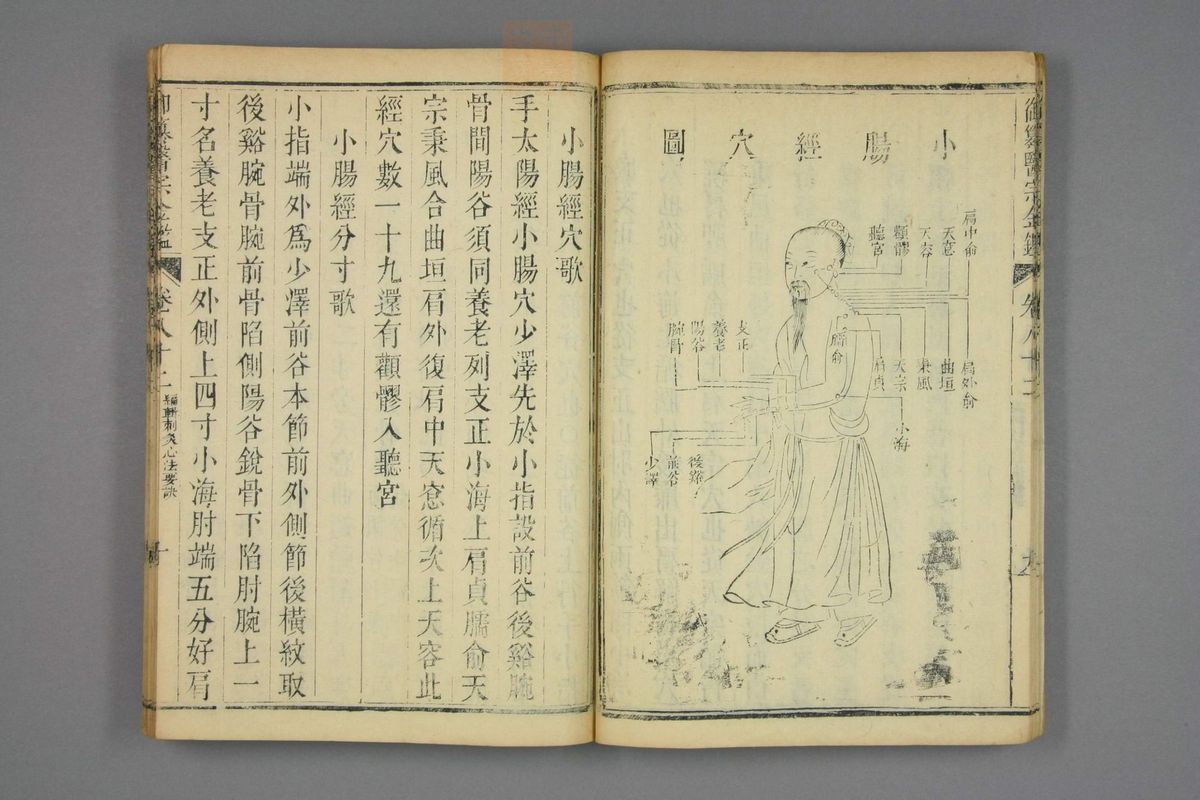 御纂醫宗金鑑
卷八十二
九
小腸經穴圖
肩中俞
天窓
天容
顴髎
聽宮
臑俞
肩外俞
曲垣
秉風
天宗
肩貞
小海
支正
養老
陽谷
腕骨
後谿
前谷
少澤
小腸經穴歌
手太陽經小腸穴少澤先於小指設前谷後谿腕
骨間陽谷須同養老列支正小海上肩貞臑俞天
宗秉風合曲垣肩外復肩中天窓循次上天容此
經穴數一十九還有顴髎入聽宮
小腸經分寸歌
小指端外爲少澤前谷本節前外側節後橫紋取
後谿腕骨腕前骨陷側陽谷銳骨下陷肘腕上一
寸名養老支正外側上四寸小海肘端五分好肩
卷八十二
編輯刺灸心法要訣
十